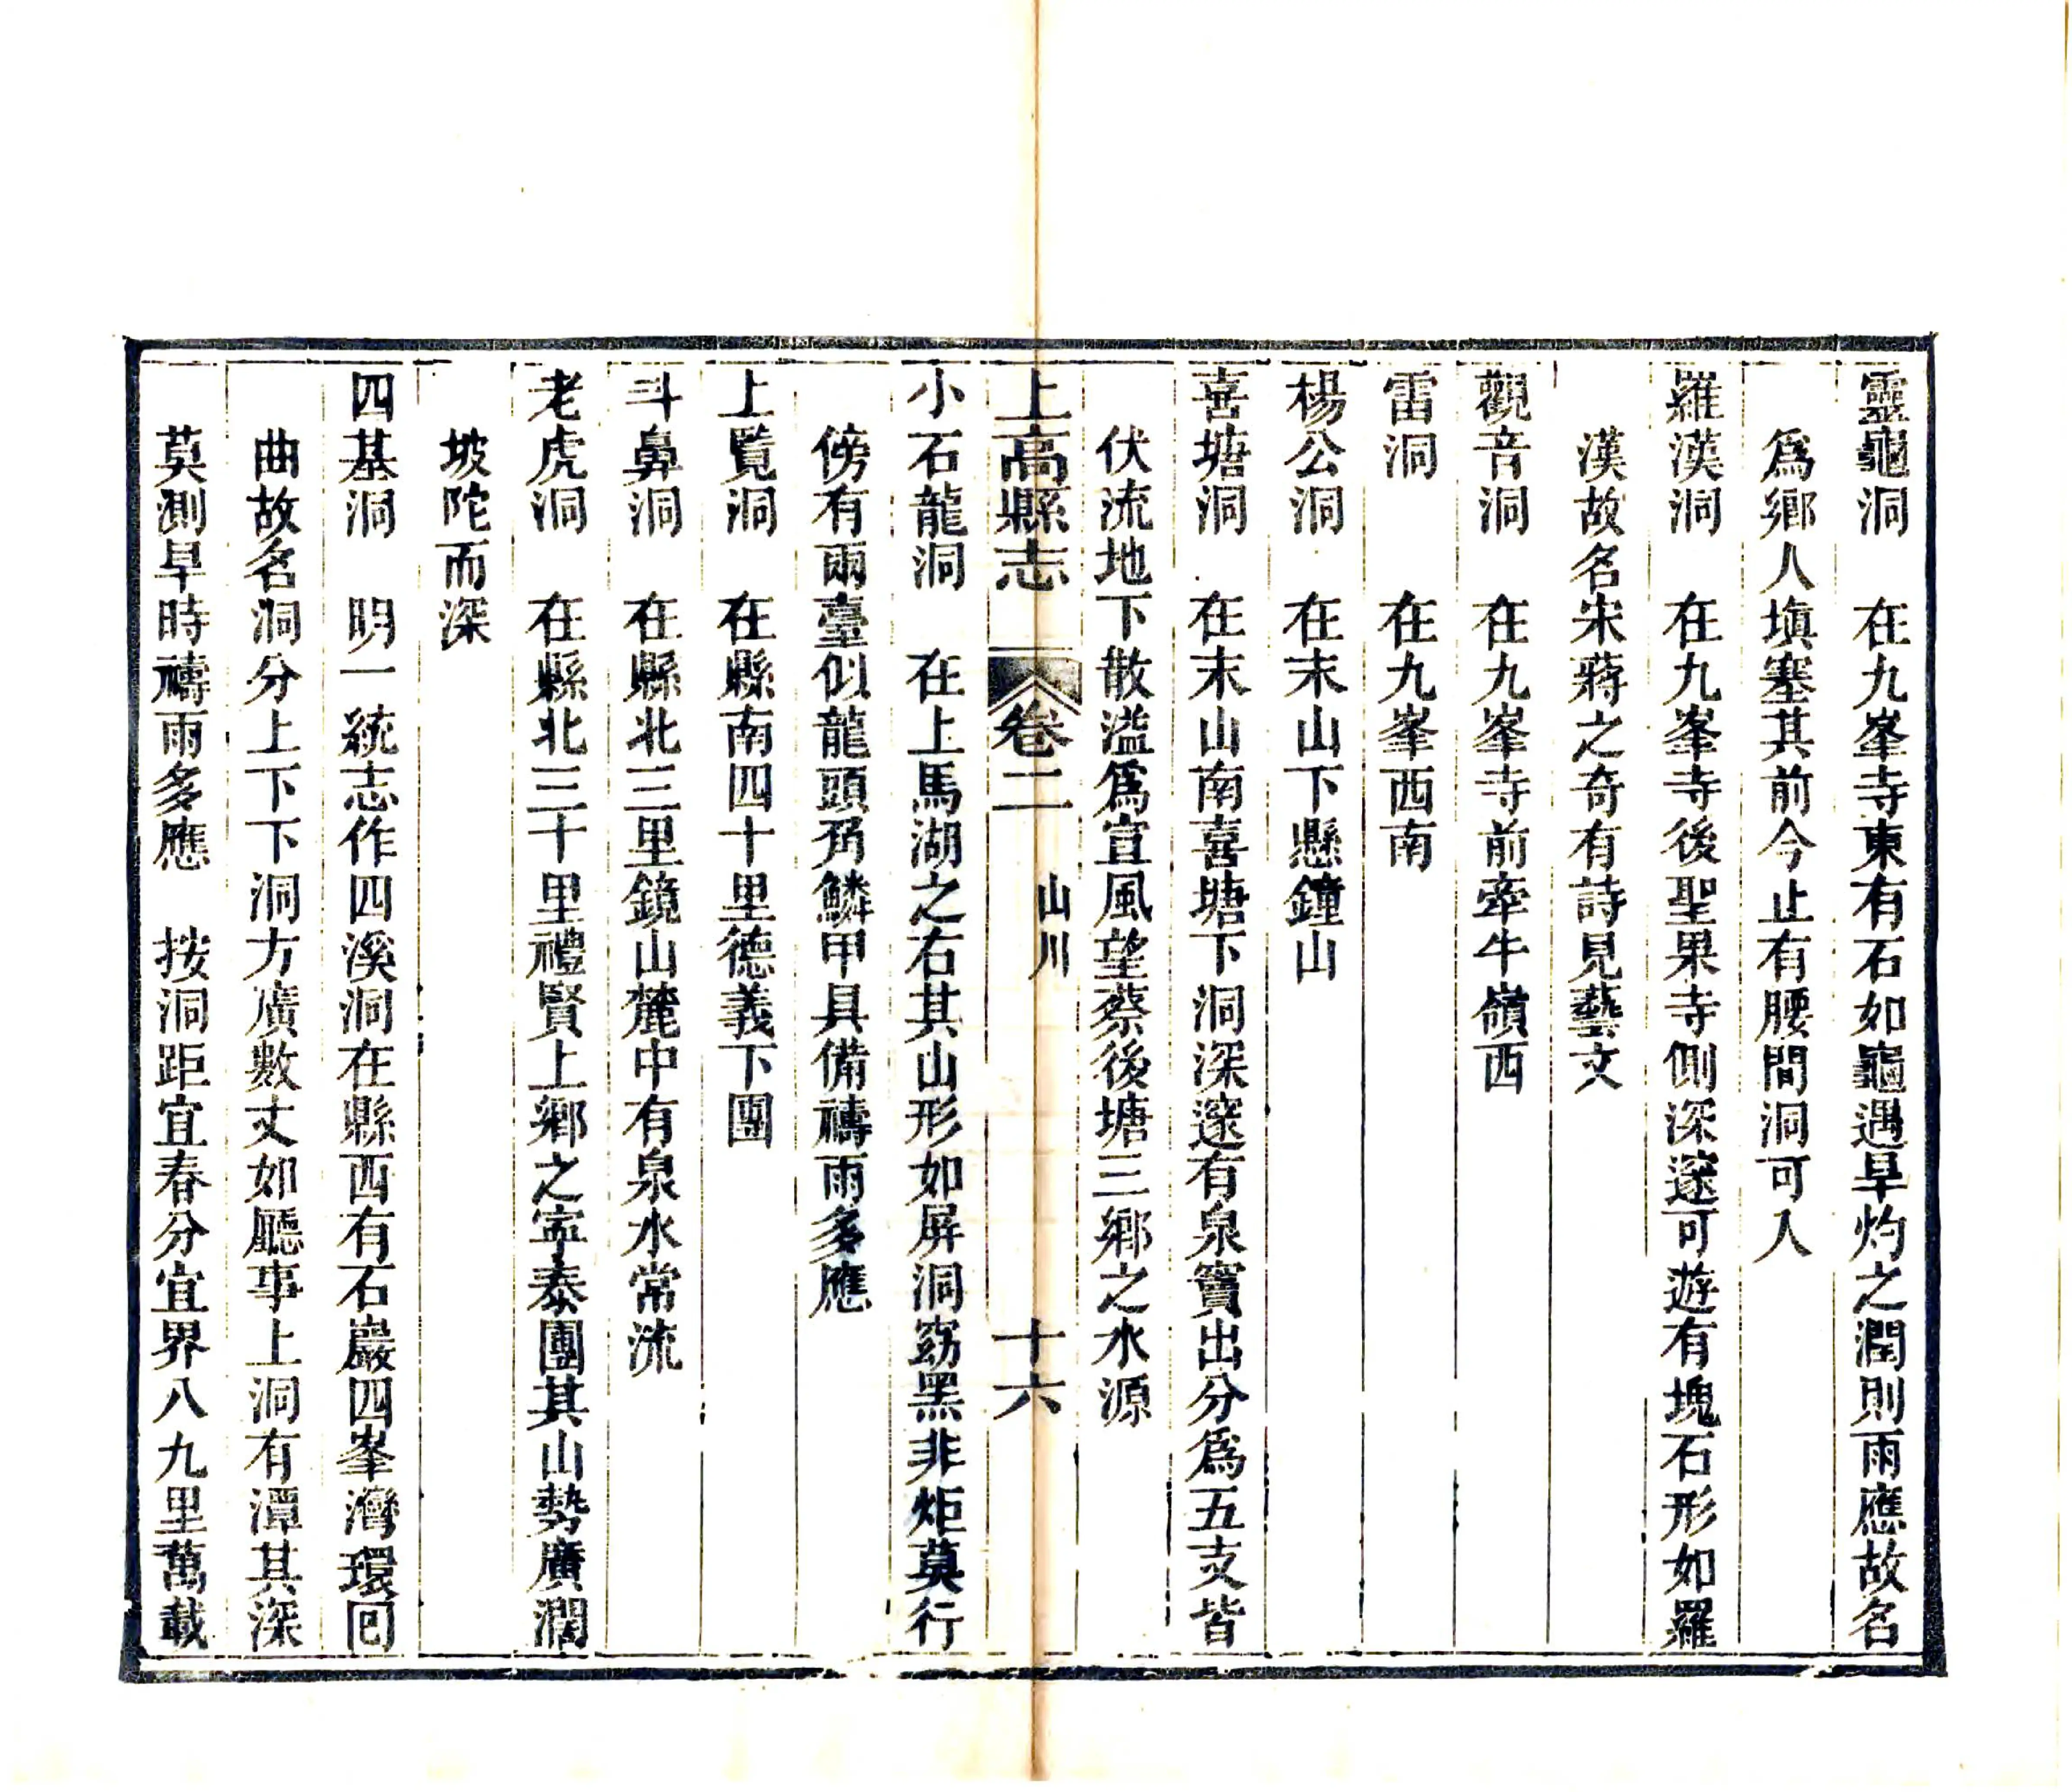 靈龜洞　在九峯寺東有石如龜遇旱灼之潤則雨應故名
爲鄉人塡塞其前今止有腰間洞可入
羅漢洞　在九峯寺後聖果寺側深邃可遊有塊石形如羅
漢故名宋蔣之奇有詩見藝文
觀音洞　在九峯寺前牽牛嶺西
雷洞　　在九峯西南
楊公洞　在末山下懸鐘山
喜塘洞　在末山南喜塘下洞深邃有泉竇出分爲五支皆
伏流地下散溢爲宣風望蔡後塘三鄉之水源
上高縣志　卷二　山川　十六
小石龍洞　在上馬湖之右其山形如屏洞窈黑非炬莫行
傍有兩臺似龍頭角鱗甲具備禱雨多應
上覽洞　在縣南四十里德義下團
斗鼻洞　在縣北三里鏡山麓中有泉水常流
老虎洞　在縣北三十里禮賢上鄉之寧泰團其山勢廣濶
坡陀而深
四基洞　明一統志作四溪洞在縣西有石巖四峯灣環回
曲故名洞分上下下洞方廣數丈如廳事上洞有潭其深
莫測旱時禱雨多應　按洞距宜春分宜界八九里萬載